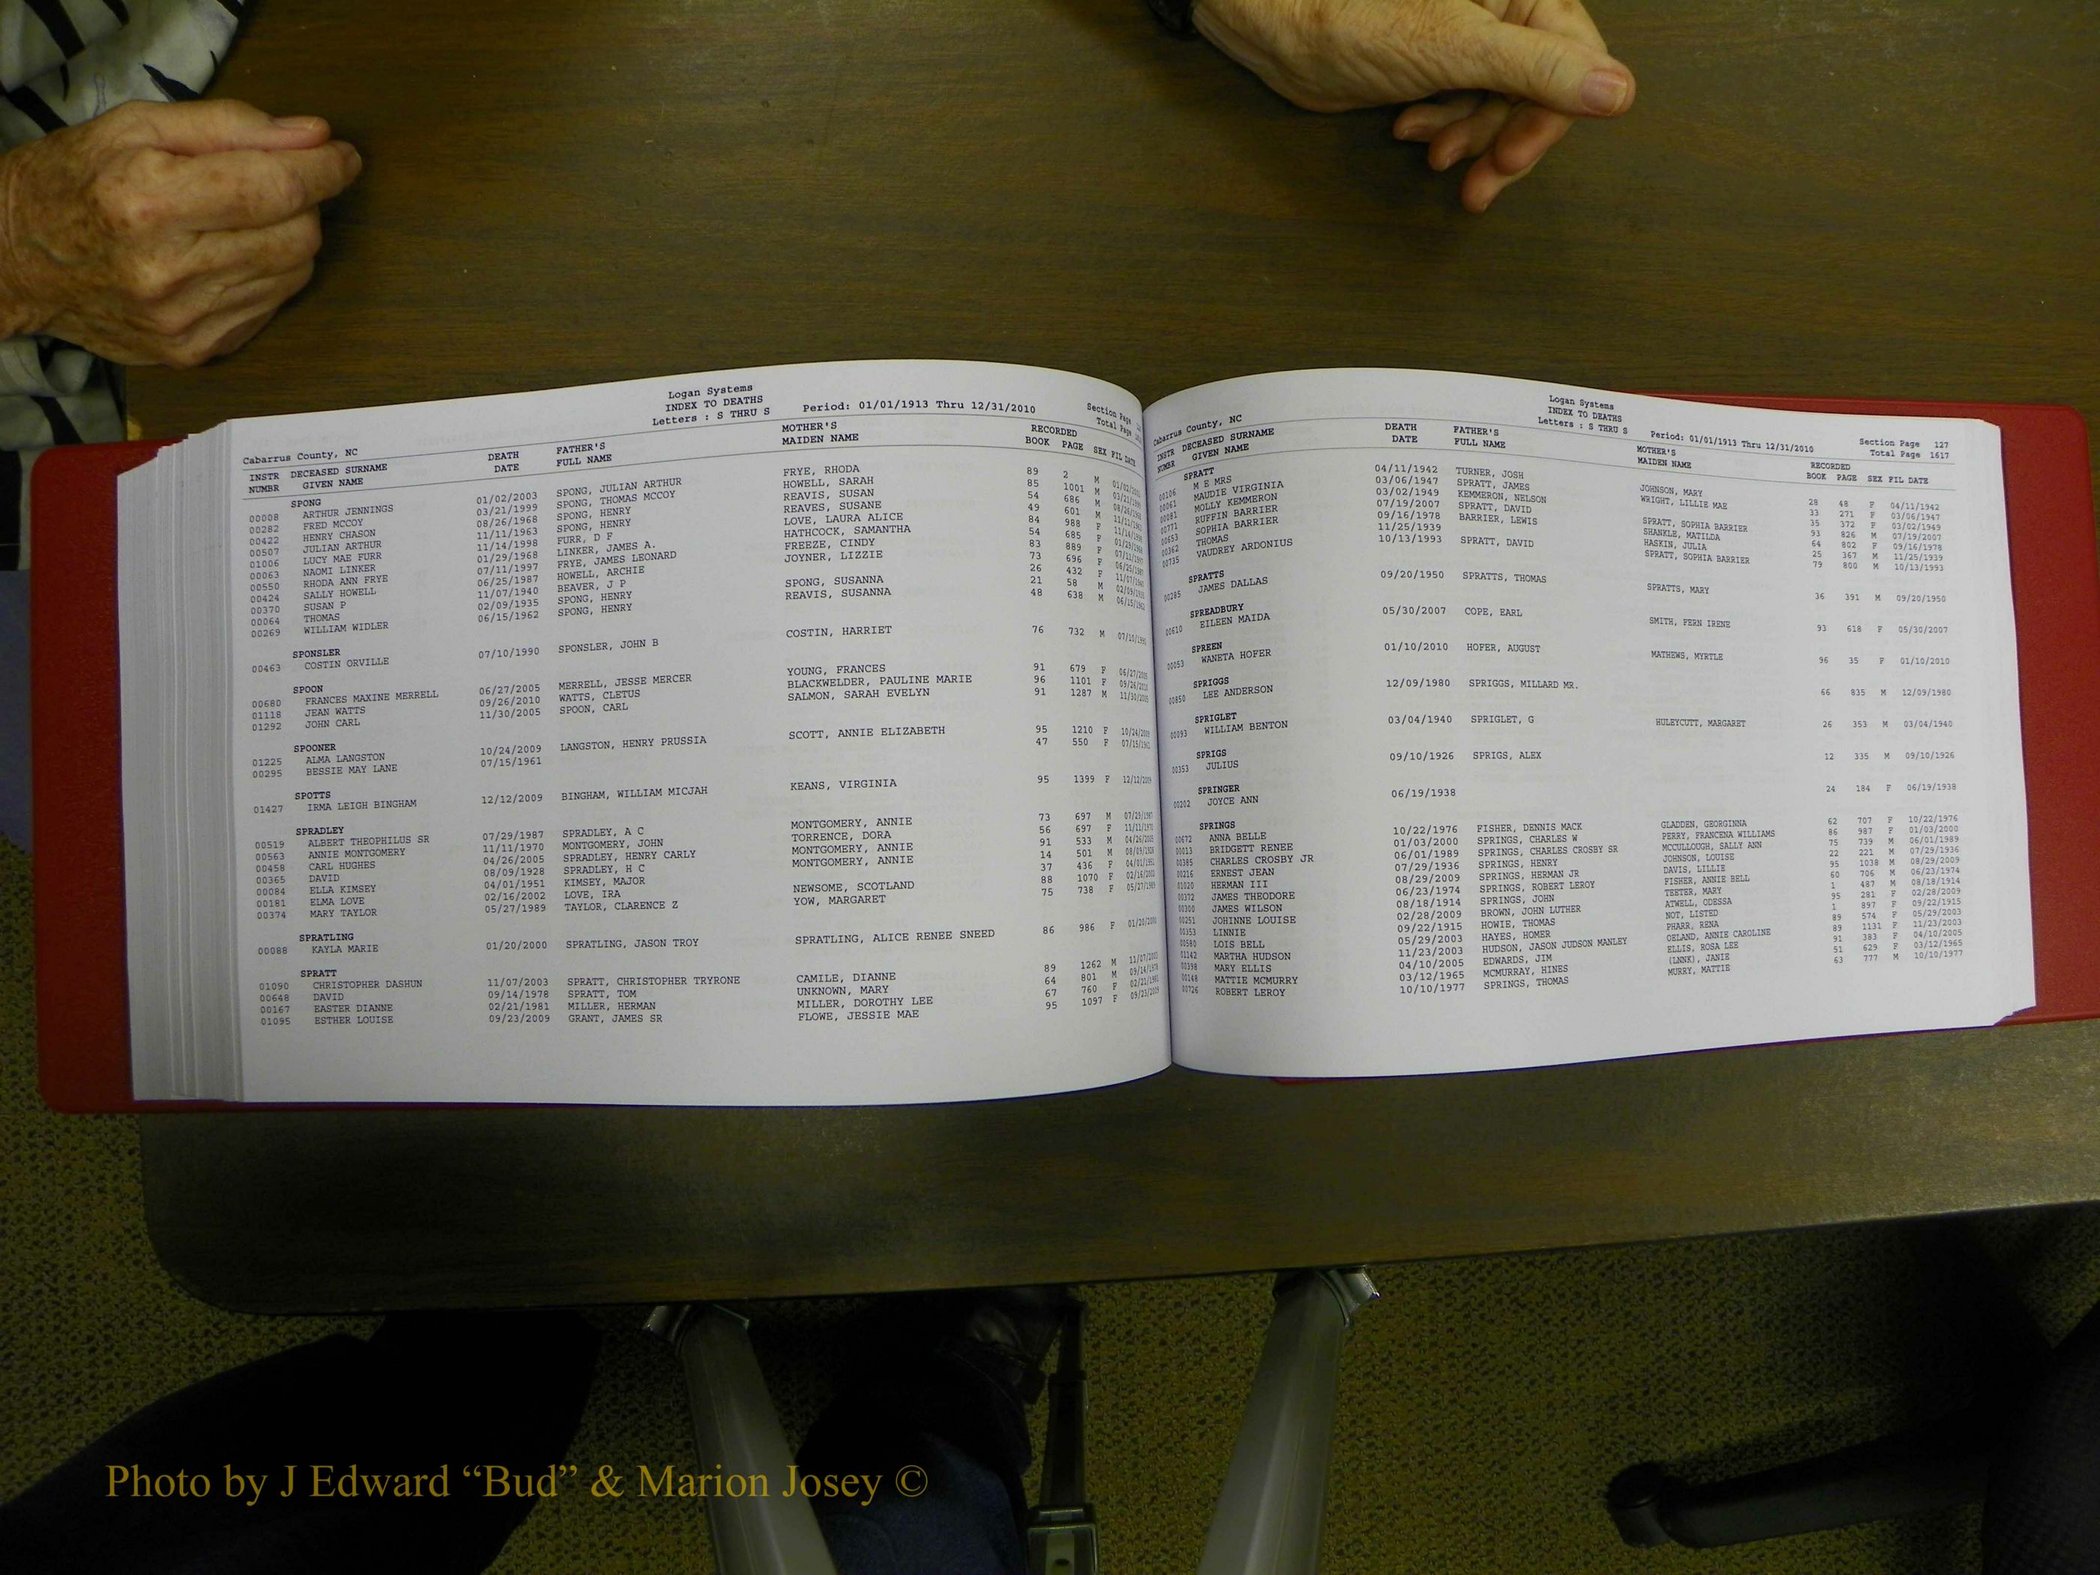 Logan Systems
INDEX TO DEATHS
Letters : S THRU S Period: 01/01/1913 Thru 12/31/2010 Section Page
Cabarrus County, NC Total Page
INSTR DECEASED SURNAME DEATH FATHER'S MOTHER'S RECORDED
NUMBR GIVEN NAME DATE FULL NAME MAIDEN NAME BOOK PAGE SEX FIL DATE
SPONG
00008 ARTHUR JENNINGS 01/02/2003 SPONG, JULIAN ARTHUR FRYE, RHODA 89 2 M
00282 FRED MCCOY 03/21/1999 SPONG, THOMAS MCCOY HOWELL, SARAH 85 1001 M
00422 HENRY CHASON 08/26/1968 SPONG, HENRY REAVIS, SUSAN 54 686 M
00507 JULIAN ARTHUR 11/11/1963 SPONG, HENRY REAVES, SUSANE 49 601 M
01006 LUCY MAE FURR 11/14/1998 FURR, D F LOVE, LAURA ALICE 84 988 F
00063 NAOMI LINKER 01/29/1968 LINKER, JAMES A. HATHCOCK, SAMANTHA 54 685 F
00550 RHODA ANN FRYE 07/11/1997 FRYE, JAMES LEONARD FREEZE, CINDY 83 889 F
00424 SALLY HOWELL 06/25/1987 HOWELL, ARCHIE JOYNER, LIZZIE 73 696 F
00370 SUSAN P 11/07/1940 BEAVER, J P 26 432 F
00064 THOMAS 02/09/1935 SPONG, HENRY SPONG, SUSANNA 21 58 M
00269 WILLIAM WIDLER 06/15/1962 SPONG, HENRY REAVIS, SUSANNA 48 638 M
SPONSLER
00463 COSTIN ORVILLE 07/10/1990 SPONSLER, JOHN B COSTIN, HARRIET 76 732 M 07/10/1990
SPOON
00680 FRANCES MAXINE MERRELL 06/27/2005 MERRELL, JESSE MERCER YOUNG, FRANCES 91 679 F 06/27/2005
01118 JEAN WATTS 09/26/2010 WATTS, CLETUS BLACKWELDER, PAULINE MARIE 96 1101 F 09/26/2010
01292 JOHN CARL 11/30/2005 SPOON, CARL SALMON, SARAH EVELYN 91 1287 M 11/30/2005
SPOONER
01225 ALMA LANGSTON 10/24/2009 LANGSTON, HENRY PRUSSIA SCOTT, ANNIE ELIZABETH 95 1210 F 10/24/2009
00295 BESSIE MAY LANE 07/15/1961 47 550 F 07/15/1961
SPOTTS
01427 IRMA LEIGH BINGHAM 12/12/2009 BINGHAM, WILLIAM MICJAH KEANS, VIRGINIA 95 1399 F 12/12/2009
SPRADLEY
00519 ALBERT THEOPHILUS SR 07/29/1987 SPRADLEY, A C MONTGOMERY, ANNIE 73 697 M 07/29/1987
00563 ANNIE MONTGOMERY 11/11/1970 MONTGOMERY, JOHN TORRENCE, DORA 56 697 F 11/11/1970
00458 CARL HUGHES 04/26/2005 SPRADLEY, HENRY CARLY MONTGOMERY, ANNIE 91 533 M 04/26/2005
00365 DAVID 08/09/1928 SPRADLEY, H C MONTGOMERY, ANNIE 14 501 M 08/09/1928
00084 ELLA KIMSEY 04/01/1951 KIMSEY, MAJOR 37 436 F 04/01/1951
00181 ELMA LOVE 02/16/2002 LOVE, IRA NEWSOME, SCOTLAND 88 1070 F 02/16/2002
00374 MARY TAYLOR 05/27/1989 TAYLOR, CLARENCE Z YOW, MARGARET 75 738 F 05/27/1989
SPRATLING
00088 KAYLA MARIE 01/20/2000 SPRATLING, JASON TROY SPRATLING, ALICE RENEE SNEED 86 986 F 01/20/2000
SPRATT
01090 CHRISTOPHER DASHUN 11/07/2003 SPRATT, CHRISTOPHER TRYRONE CAMILE, DIANNE 89 1262 M 11/07/2003
00648 DAVID 09/14/1978 SPRATT, TOM UNKNOWN, MARY 64 801 M 09/14/1978
00167 EASTER DIANNE 02/21/1981 MILLER, HERMAN MILLER, DOROTHY LEE 67 760 F 02/21/1981
01095 ESTHER LOUISE 09/23/2009 GRANT, JAMES SR FLOWE, JESSIE MAE 95 1097 F 09/23/2009
Logan Systems
INDEX TO DEATHS
Letters : S THRU S Period: 01/01/1913 Thru 12/31/2010 Section Page 127
Cabarrus County, NC Total Page 1617
INSTR DECEASED SURNAME DEATH FATHER'S MOTHER'S RECORDED
NUMBR GIVEN NAME DATE FULL NAME MAIDEN NAME BOOK PAGE SEX FIL DATE
SPRATT
00106 M E MRS 04/11/1942 TURNER, JOSH JOHNSON, MARY 28 48 F 04/11/1942
00061 MAUDIE VIRGINIA 03/06/1947 SPRATT, JAMES WRIGHT, LILLIE MAE 33 271 F 03/06/1947
00081 MOLLY KEMMERON 03/02/1949 KEMMERON, NELSON 35 372 F 03/02/1949
00771 RUFFIN BARRIER 07/19/2007 SPRATT, DAVID SPRATT, SOPHIA BARRIER 93 826 M 07/19/2007
00653 SOPHIA BARRIER 09/16/1978 BARRIER, LEWIS SHANKLE, MATILDA 64 802 F 09/16/1978
00362 THOMAS 11/25/1939 HASKIN, JULIA 25 367 M 11/25/1939
00735 VAUDREY ARDONIUS 10/13/1993 SPRATT, DAVID SPRATT, SOPHIA BARRIER 79 800 M 10/13/1993
SPRATTS
00285 JAMES DALLAS 09/20/1950 SPRATTS, THOMAS SPRATTS, MARY 36 391 M 09/20/1950
SPREADBURY
00610 EILEEN MAIDA 05/30/2007 COPE, EARL SMITH, FERN IRENE 93 618 F 05/30/2007
SPREEN
00053 WANETA HOFER 01/10/2010 HOFER, AUGUST MATHEWS, MYRTLE 96 35 F 01/10/2010
SPRIGGS
00850 LEE ANDERSON 12/09/1980 SPRIGGS, MILLARD MR. 66 835 M 12/09/1980
SPRIGLET
00093 WILLIAM BENTON 03/04/1940 SPRIGLET, G HULEYCUTT, MARGARET 26 353 M 03/04/1940
SPRIGS
00353 JULIUS 09/10/1926 SPRIGS, ALEX 12 335 M 09/10/1926
SPRINGER
00202 JOYCE ANN 06/19/1938 24 184 F 06/19/1938
SPRINGS
00672 ANNA BELLE 10/22/1976 FISHER, DENNIS MACK GLADDEN, GEORGINNA 62 707 F 10/22/1976
00013 BRIDGETT RENEE 01/03/2000 SPRINGS, CHARLES W PERRY, FRANCENA WILLIAMS 86 987 F 01/03/2000
00385 CHARLES CROSBY JR 06/01/1989 SPRINGS, CHARLES CROSBY SR MCCULLOUGH, SALLY ANN 75 739 M 06/01/1989
00216 ERNEST JEAN 07/29/1936 SPRINGS, HENRY JOHNSON, LOUISE 22 221 M 07/29/1936
01020 HERMAN III 08/29/2009 SPRINGS, HERMAN JR DAVIS, LILLIE 95 1038 M 08/29/2009
00372 JAMES THEODORE 06/23/1974 SPRINGS, ROBERT LEROY FISHER, ANNIE BELL 60 706 M 06/23/1974
00300 JAMES WILSON 08/18/1914 SPRINGS, JOHN TEETER, MARY 1 487 M 08/18/1914
00251 JOHINNE LOUISE 02/28/2009 BROWN, JOHN LUTHER ATWELL, ODESSA 95 281 F 02/28/2009
00353 LINNIE 09/22/1915 HOWIE, THOMAS NOT, LISTED 1 897 F 09/22/1915
00580 LOIS BELL 05/29/2003 HAYES, HOMER PHARR, RENA 89 574 F 05/29/2003
01142 MARTHA HUDSON 11/23/2003 HUDSON, JASON JUDSON MANLEY OELAND, ANNIE CAROLINE 89 1131 F 11/23/2003
00398 MARY ELLIS 04/10/2005 EDWARDS, JIM ELLIS, ROSA LEE 91 383 F 04/10/2005
00148 MATTIE MCMURRY 03/12/1965 MCMURRAY, HINES (LNNK), JANIE 51 629 F 03/12/1965
00726 ROBERT LEROY 10/10/1977 SPRINGS, THOMAS MURRY, MATTIE 63 777 M 10/10/1977
Photo by J Edward “Bud” & Marion Josey ©